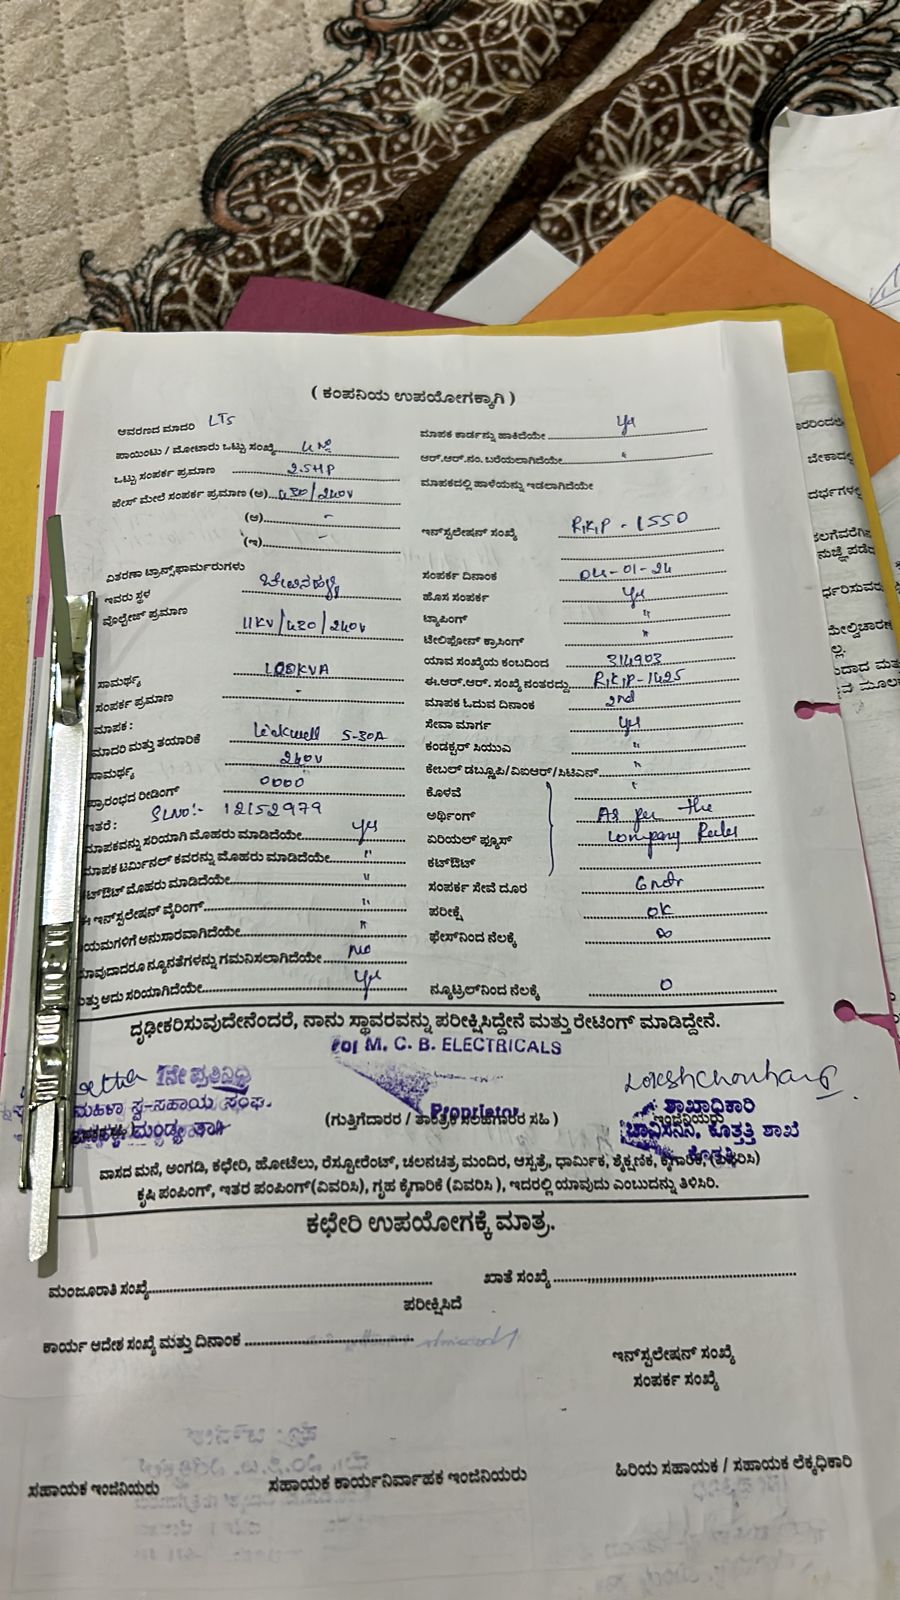 ( ಕಂಪನಿಯ ಉಪಯೋಗಕ್ಕಾಗಿ )
ಆವರಣದ ಮಾದರಿ LT5
ಪಾಯಿಂಟು / ಮೋಟಾರು ಒಟ್ಟು ಸಂಖ್ಯೆ
ಒಟ್ಟು ಸಂಪರ್ಕ ಪ್ರಮಾಣ 2.5HP
ಫೇಸ್ ಮೇಲೆ ಸಂಪರ್ಕ ಪ್ರಮಾಣ (ಅ) 430/240V
(ಆ) -
(ಇ) -
ವಿತರಣಾ ಟ್ರಾನ್ಸ್‌ಫಾರ್ಮರುಗಳು
ಇವರು ಸ್ಥಳ
ವೋಲ್ಟೇಜ್ ಪ್ರಮಾಣ 11KV/430/240V
ಸಾಮರ್ಥ್ಯ 100KVA
ಸಂಪರ್ಕ ಪ್ರಮಾಣ -
ಮಾಪಕ :
ಮಾದರಿ ಮತ್ತು ತಯಾರಿಕೆ 5-30A
ಸಾಮರ್ಥ್ಯ 240V
ಪ್ರಾರಂಭದ ರೀಡಿಂಗ್ 0000
ಇತರೆ : SLNO:- 12152979
ಮಾಪಕವನ್ನು ಸರಿಯಾಗಿ ಮೊಹರು ಮಾಡಿದೆಯೇ yes
ಮಾಪಕ ಟರ್ಮಿನಲ್ ಕವರನ್ನು ಮೊಹರು ಮಾಡಿದೆಯೇ "
ಕಟ್‌ಔಟ್ ಮೊಹರು ಮಾಡಿದೆಯೇ "
ಈ ಇನ್‌ಸ್ಟಲೇಷನ್ ವೈರಿಂಗ್ "
ಯಮಗಳಿಗೆ ಅನುಸಾರವಾಗಿದೆಯೇ "
ಯಾವುದಾದರೂ ನ್ಯೂನತೆಗಳನ್ನು ಗಮನಿಸಲಾಗಿದೆಯೇ No
ಮತ್ತು ಅದು ಸರಿಯಾಗಿದೆಯೇ yes
ಮಾಪಕ ಕಾರ್ಡನ್ನು ಹಾಕಿದೆಯೇ yes
ಆರ್.ಆರ್.ನಂ. ಬರೆಯಲಾಗಿದೆಯೇ "
ಮಾಪಕದಲ್ಲಿ ಹಾಳೆಯನ್ನು ಇಡಲಾಗಿದೆಯೇ
ಇನ್‌ಸ್ಟಲೇಷನ್ ಸಂಖ್ಯೆ RKP - 1550
ಸಂಪರ್ಕ ದಿನಾಂಕ 04-01-24
ಹೊಸ ಸಂಪರ್ಕ yes
ಟ್ಯಾಪಿಂಗ್ "
ಟೆಲಿಫೋನ್ ಕ್ರಾಸಿಂಗ್ "
ಯಾವ ಸಂಖ್ಯೆಯ ಕಂಬದಿಂದ 314903
ಈ.ಆರ್.ಆರ್. ಸಂಖ್ಯೆ ನಂತರದ್ದು RKP-1425
ಮಾಪಕ ಓದುವ ದಿನಾಂಕ 2nd
ಸೇವಾ ಮಾರ್ಗ yes
ಕಂಡಕ್ಟರ್ ಸಿಯುಎ "
ಕೇಬಲ್ ಡಬ್ಲ್ಯೂಪಿ/ವಿಐಆರ್/ಸಿಟಿಎಸ್ "
ಕೊಳವೆ "
ಅರ್ಥಿಂಗ್ As per the
ಏರಿಯಲ್ ಫ್ಯೂಸ್ Company Rules
ಕಟ್‌ಔಟ್
ಸಂಪರ್ಕ ಸೇವೆ ದೂರ
ಪರೀಕ್ಷೆ OK
ಫೇಸ್‌ನಿಂದ ನೆಲಕ್ಕೆ ∞
ನ್ಯೂಟ್ರಲ್‌ನಿಂದ ನೆಲಕ್ಕೆ 0
ದೃಢೀಕರಿಸುವುದೇನೆಂದರೆ, ನಾನು ಸ್ಥಾವರವನ್ನು ಪರೀಕ್ಷಿಸಿದ್ದೇನೆ ಮತ್ತು ರೇಟಿಂಗ್ ಮಾಡಿದ್ದೇನೆ.
For M. C. B. ELECTRICALS
1ನೇ ಪ್ರತಿನಿಧಿ
ಮಹಿಳಾ ಸ್ವ-ಸಹಾಯ ಸಂಘ.
ಮಂಡ್ಯ ತಾ||
Proprietor
(ಗುತ್ತಿಗೆದಾರರ / ತಾಂತ್ರಿಕ ಸಲಹೆಗಾರರ ಸಹಿ )
ಶಾಖಾಧಿಕಾರಿ
ಇಂಜಿನಿಯರು
ಚಾವಿಸನಿನಿ, ಕೊತ್ತತ್ತಿ ಶಾಖೆ
ಕೊತ್ತತ್ತಿ
ವಾಸದ ಮನೆ, ಅಂಗಡಿ, ಕಛೇರಿ, ಹೋಟೆಲು, ರೆಸ್ಟೋರೆಂಟ್, ಚಲನಚಿತ್ರ ಮಂದಿರ, ಆಸ್ಪತ್ರೆ, ಧಾರ್ಮಿಕ, ಶೈಕ್ಷಣಿಕ, ಕೈಗಾರಿಕೆ, (ವಿವರಿಸಿ)
ಕೃಷಿ ಪಂಪಿಂಗ್, ಇತರ ಪಂಪಿಂಗ್(ವಿವರಿಸಿ), ಗೃಹ ಕೈಗಾರಿಕೆ (ವಿವರಿಸಿ ), ಇದರಲ್ಲಿ ಯಾವುದು ಎಂಬುದನ್ನು ತಿಳಿಸಿರಿ.
ಕಛೇರಿ ಉಪಯೋಗಕ್ಕೆ ಮಾತ್ರ.
ಮಂಜೂರಾತಿ ಸಂಖ್ಯೆ
ಖಾತೆ ಸಂಖ್ಯೆ
ಪರೀಕ್ಷಿಸಿದೆ
ಕಾರ್ಯ ಆದೇಶ ಸಂಖ್ಯೆ ಮತ್ತು ದಿನಾಂಕ
ಇನ್‌ಸ್ಟಲೇಷನ್ ಸಂಖ್ಯೆ
ಸಂಪರ್ಕ ಸಂಖ್ಯೆ
ಸಹಾಯಕ ಇಂಜಿನಿಯರು
ಸಹಾಯಕ ಕಾರ್ಯನಿರ್ವಾಹಕ ಇಂಜಿನಿಯರು
ಹಿರಿಯ ಸಹಾಯಕ / ಸಹಾಯಕ ಲೆಕ್ಕಧಿಕಾರಿ